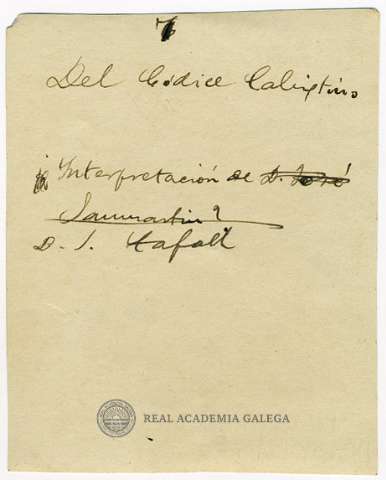 7
Del Códice Calixtino
Interpretación de D. José
Sanmartín?
D. S. Tafall
REAL ACADEMIA GALEGA